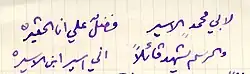 لابي محمد الاسير فضل علي انا الحقير
والرسم يشهد قائلاً اني اسير ابن الاسير